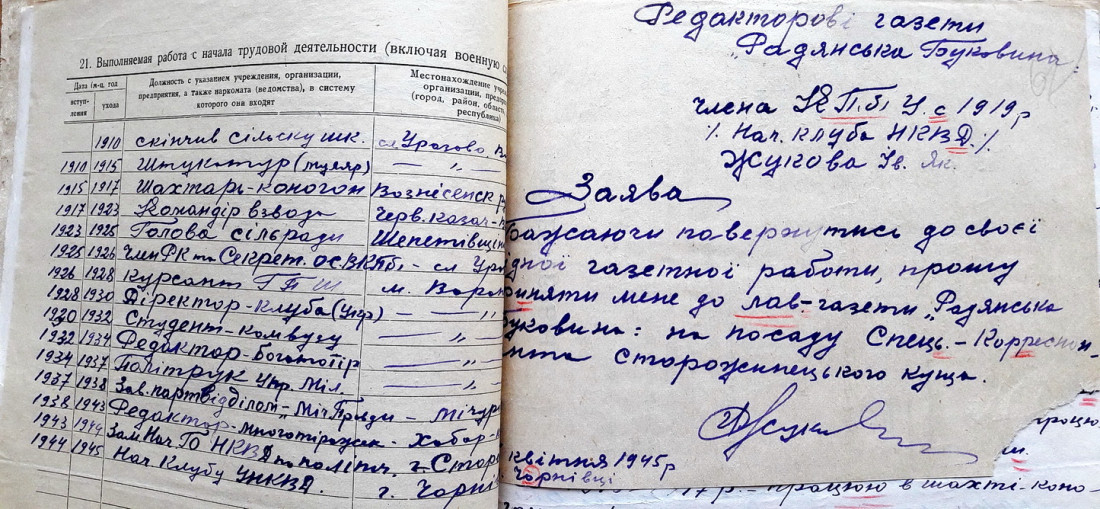 21. Выполняемая работа с начала трудовой деятельности (включая военную
Дата (м-ц, год
вступления
ухода
Должность с указанием учреждения, организации, предприятия, а также наркомата (ведомства), в систему которого они входят
Местонахождение
организации,
(город, район,
1910 скінчив сільску шк.
1910 1915 Штукатур
1915 1917 Шахтарь-коногон Вознісенск
1917 1923 Командір взвода Черв. казач-
1923 1925 Голова сільради
1925 1926 Член РК та Секрет. ос. ВКПб
1926 1928 курсант м.
1928 1930 Діректор-клуба (Укр)
1930 1932 Студент-комвузу
1932 1934 Редактор-
1934 1937 Політрук Укр. Міл.
1937 1938 Зав. партвідділом
1938 1943 Редактор-многотіражк - Хабар-
1943 1944 Зам Нач. НКВД по політч. г. Стор
1944 1945 Нач. Клубу УНКВД. г. Чорні
Редакторові газети
"Радянська Буковина"
члена КП.б.У. с 1919р
% Нач. Клуба НКВД. %
Жукова Ів. Як.
Заява
Бажаючи повернутись до своєї
газетної работи, прошу
мене до лав-газети "Радянська
Буковина: на посаду Спець.-Корреспон-
Сторожинецького куща.
квітня 1945р
Чорнівці
17 р.- працюю в шахті-коно-